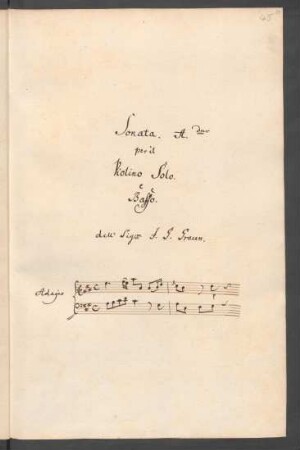 Sonata. A. dur
per il
Violino Solo.
e
Basso.
dell Sigr J. G. Graun.
Adagio